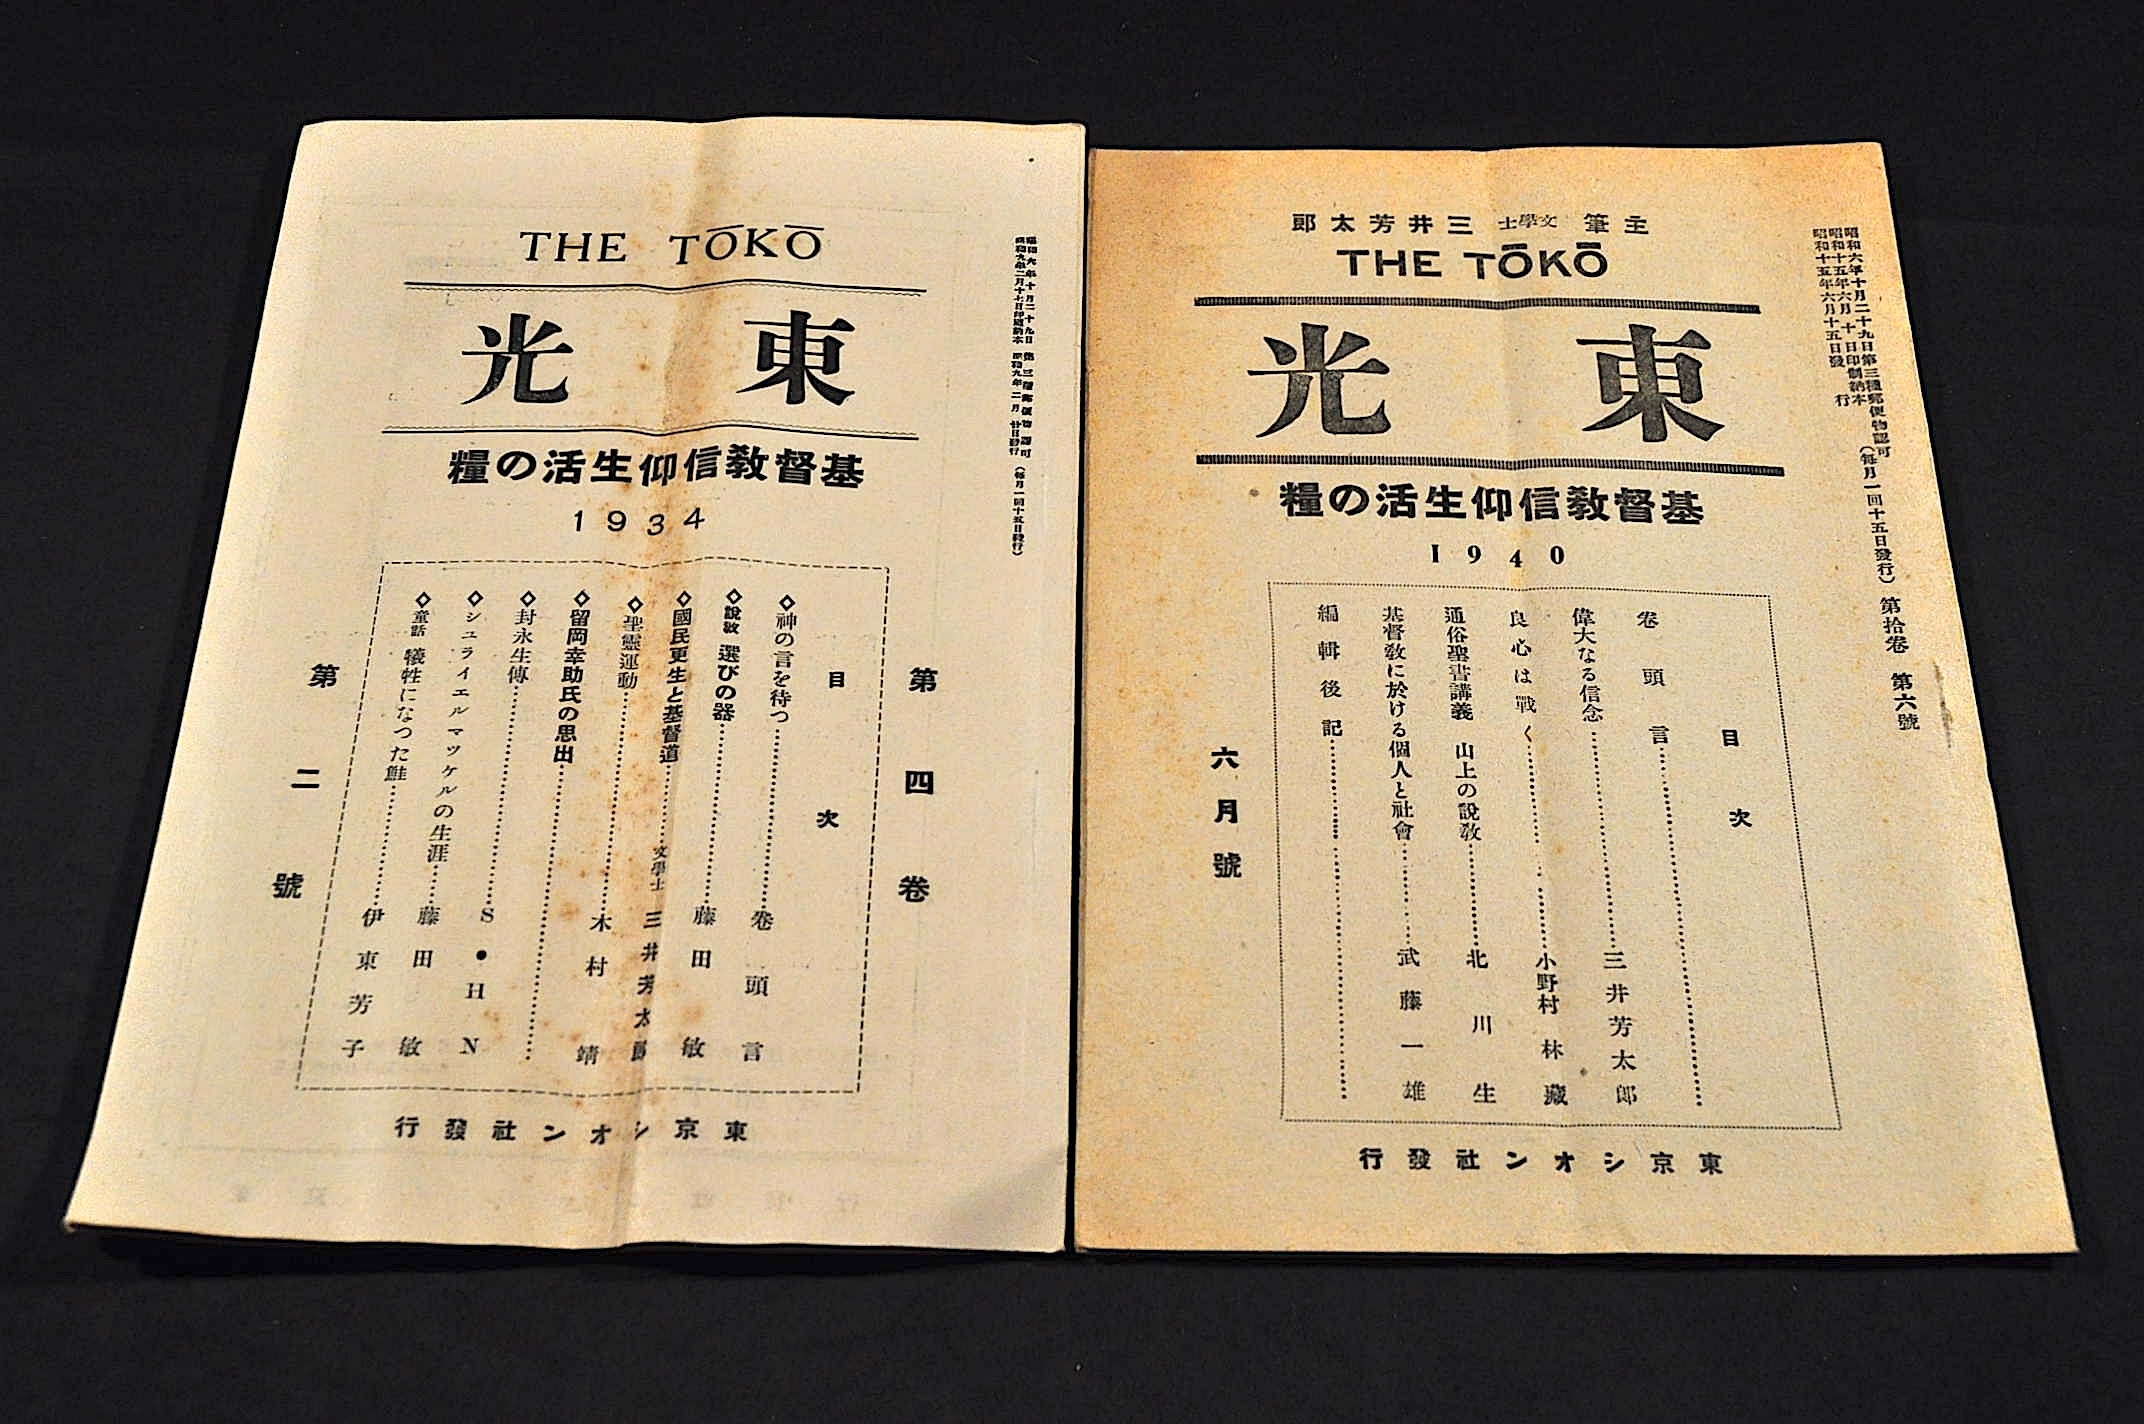 THE TŌKŌ
東光
基督教信仰生活の糧
1934
昭和六年十月二十九日第三種郵便物認可(毎月一回十五日發行)
昭和九年二月十七日印刷納本 昭和九年二月廿日發行
第四卷
目次
◇神の言を待つ……卷頭言
◇說敎 選びの器……藤田敏
◇國民更生と基督道……文學士 三井芳太郎
◇聖靈運動……木村靖
◇留岡幸助氏の思出……
◇封永生傳……S・HN
◇シユライエルマツケルの生涯……藤田敏
◇童話 犧牲になつた鮭……伊東芳子
第二號
東京シオン社發行
主筆 文學士 三井芳太郎
THE TŌKŌ
東光
基督敎信仰生活の糧
1940
昭和六年十月二十九日第三種郵便物認可(每月一回十五日發行) 第拾卷 第六號
昭和十五年六月十日印刷納本
昭和十五年六月十五日發行
目次
卷頭言……
偉大なる信念……三井芳太郎
良心は戰く……小野村林藏
通俗聖書講義 山上の說敎……北川生
基督敎に於ける個人と社會……武藤一雄
編輯後記……
六月號
東京シオン社發行